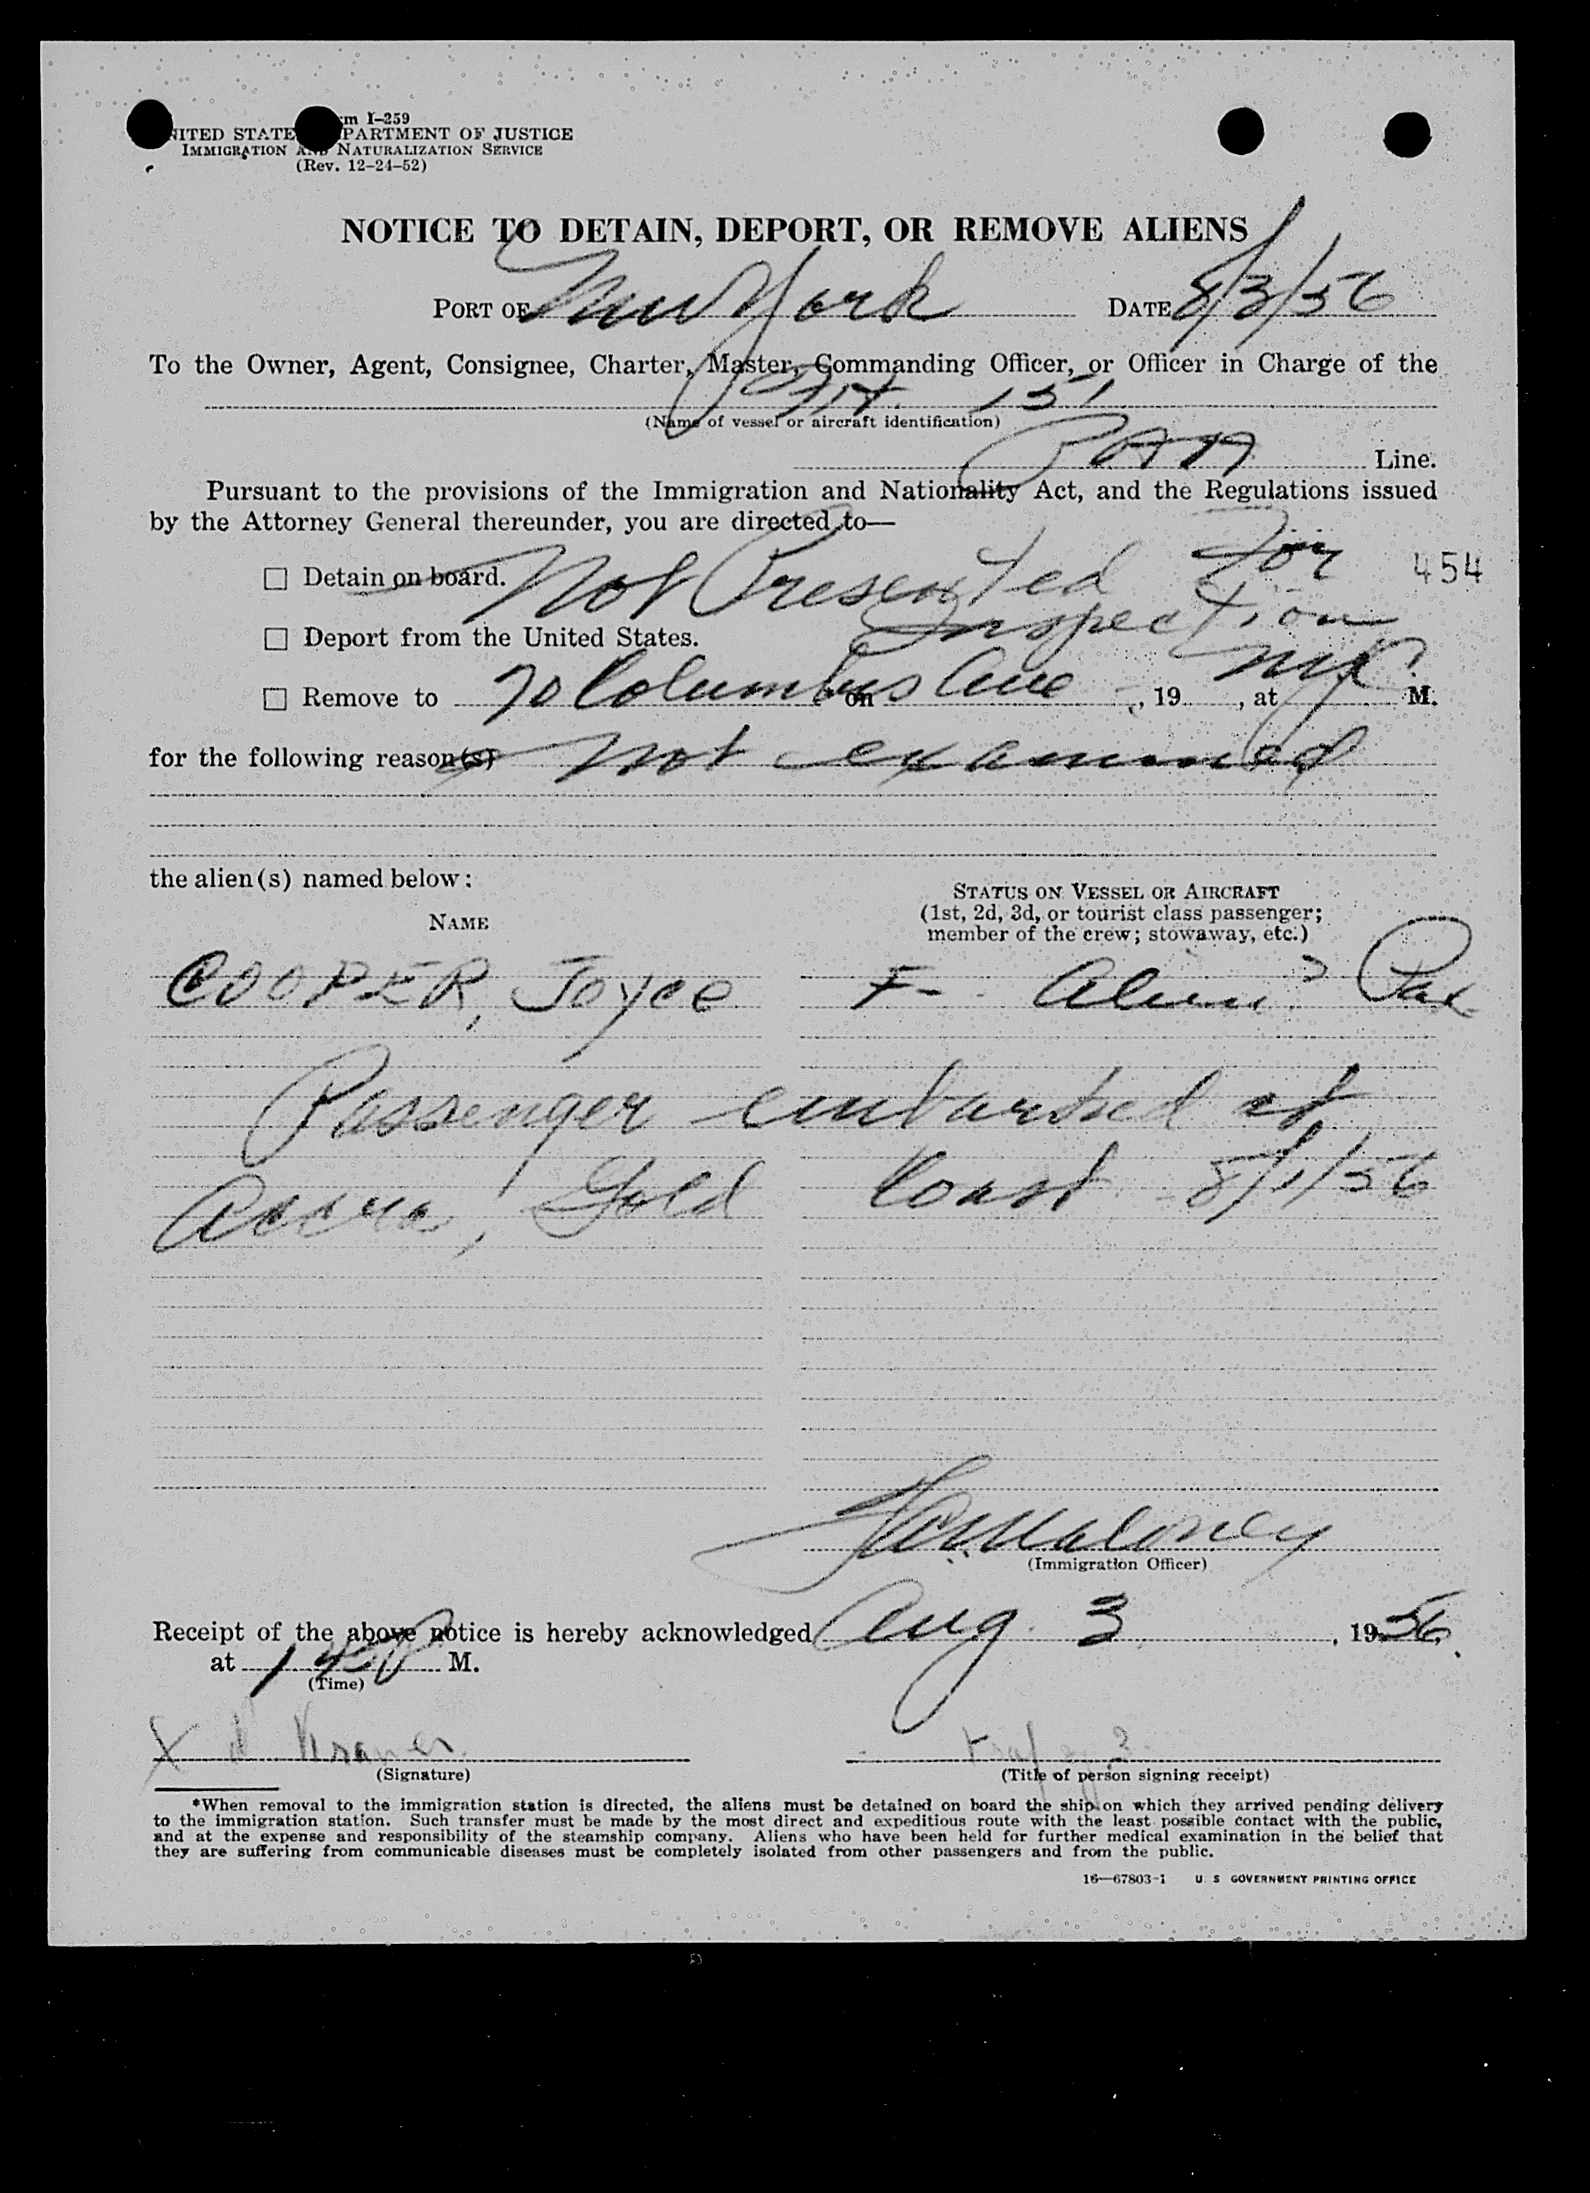 Form I-259
UNITED STATES DEPARTMENT OF JUSTICE
IMMIGRATION AND NATURALIZATION SERVICE
(Rev. 12-24-52)
NOTICE TO DETAIN, DEPORT, OR REMOVE ALIENS
PORT OF New York DATE 8/3/56
To the Owner, Agent, Consignee, Charter, Master, Commanding Officer, or Officer in Charge of the
Flt. 151
(Name of vessel or aircraft identification)
PAA Line.
Pursuant to the provisions of the Immigration and Nationality Act, and the Regulations issued
by the Attorney General thereunder, you are directed to—
☐ Detain on board. Not Presented For 454
Inspection
☐ Deport from the United States.
☐ Remove to 70 Columbus Ave on , 19 , at NYC M.
for the following reason(s) Not examined
the alien(s) named below:
STATUS ON VESSEL OR AIRCRAFT
(1st, 2d, 3d, or tourist class passenger;
member of the crew; stowaway, etc.)
NAME
COOPER, Joyce F- Alien? Pax
Passenger embarked at
Accra, Gold Coast 8/1/56
Maloney
(Immigration Officer)
Receipt of the above notice is hereby acknowledged Aug. 3, 1956
at M.
(Time)
X Kramer
(Signature) (Title of person signing receipt)
*When removal to the immigration station is directed, the aliens must be detained on board the ship on which they arrived pending delivery
to the immigration station. Such transfer must be made by the most direct and expeditious route with the least possible contact with the public,
and at the expense and responsibility of the steamship company. Aliens who have been held for further medical examination in the belief that
they are suffering from communicable diseases must be completely isolated from other passengers and from the public.
16—67803-1 U. S. GOVERNMENT PRINTING OFFICE